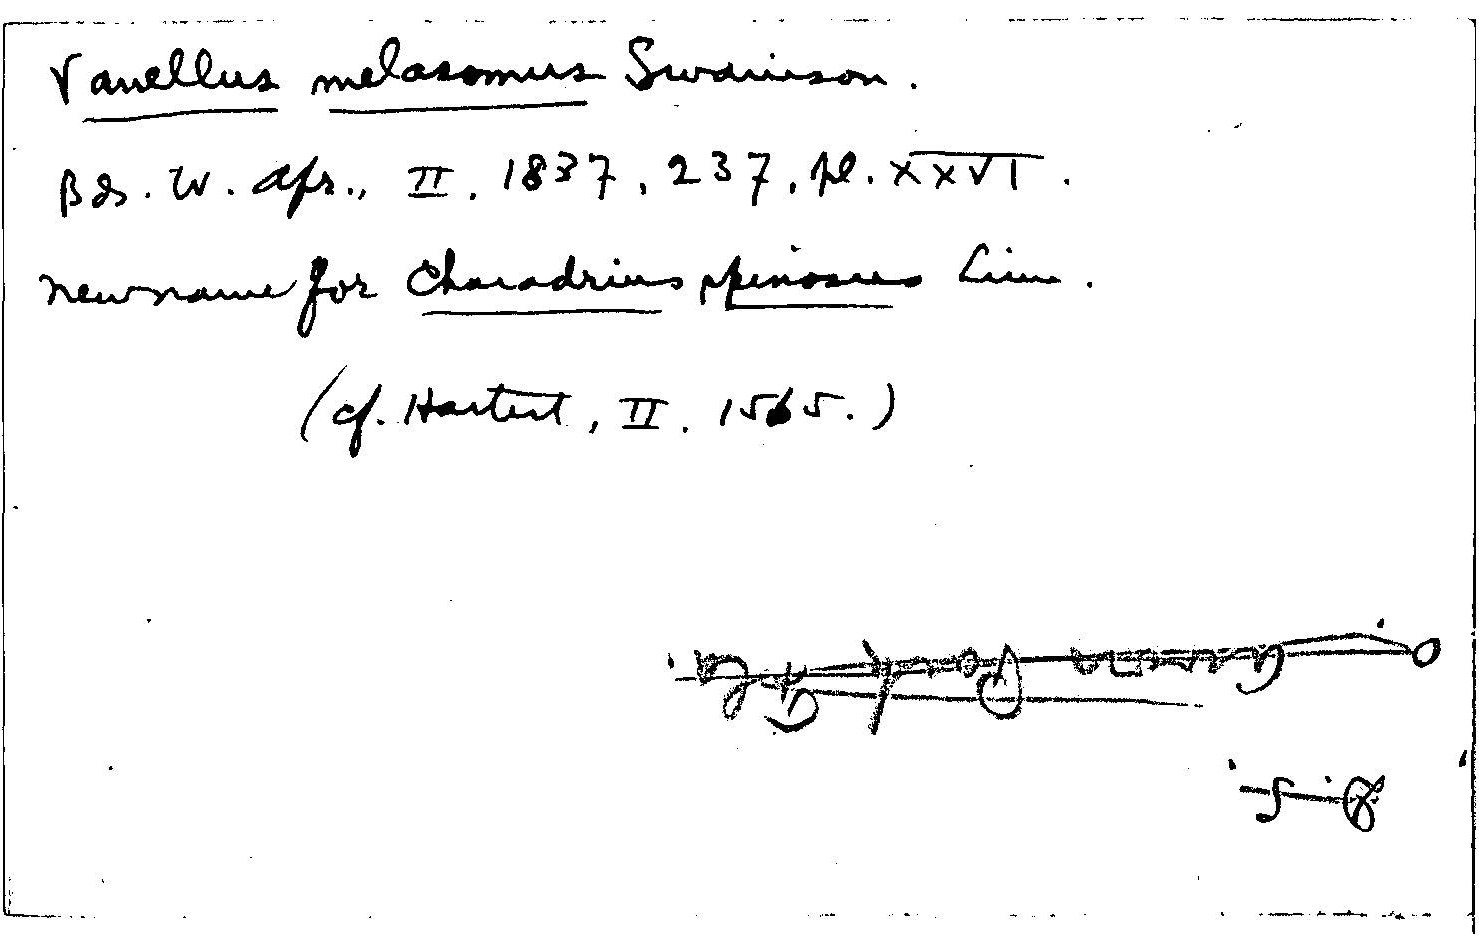 Vanellus melasomus Swainson.
Bds. W. Afr., II. 1837, 237, pl. XXVI.
new name for Charadrius spinosus Linn.
(cf. Hartert, II. 1565.)